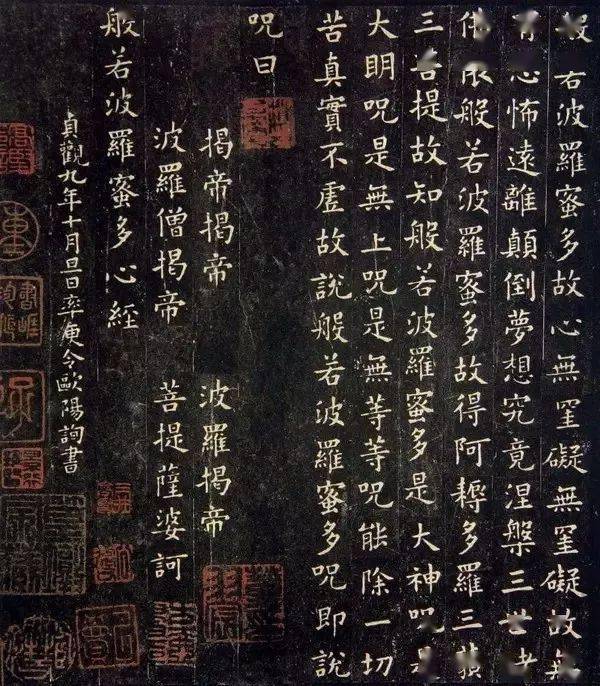 般若波羅蜜多故心無罣礙無罣礙故無
有怖遠離顛倒夢想究竟涅槃三世
佛依般若波羅蜜多故得阿耨多羅三藐
三菩提故知般若波羅蜜多是大神咒是
大明咒是無上咒是無等等咒能除一切
苦真實不虛故說般若波羅蜜多咒即說
咒曰
揭帝揭帝 波羅揭帝
波羅僧揭帝 菩提薩婆訶
般若波羅蜜多心經
貞觀九年十月旦日率更令歐陽詢書